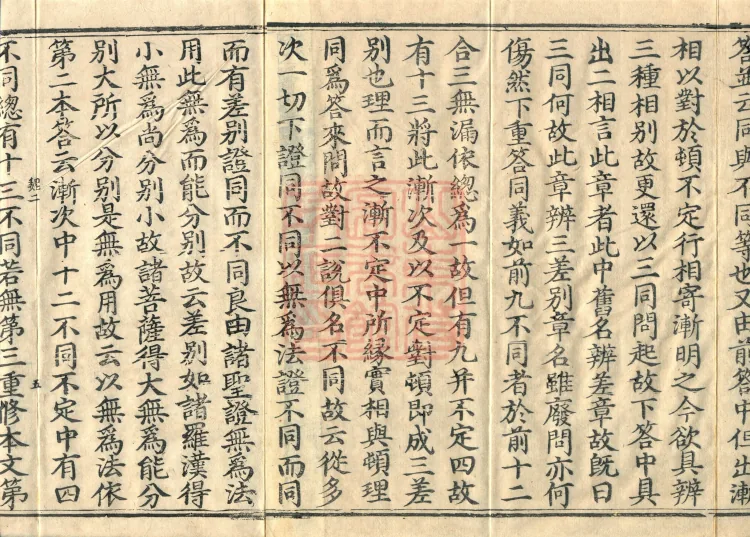 答並云同與不同等也又由前答中但出漸
相以對於頓不定行相寄漸明之今欲具辨
三種相別故更還以三同問起故下答中具
出二相言此章者此中舊名辨差章故既曰
三同何故此章辨三差別章名雖廢問亦何
傷然下重答同義如前九不同者於前十二
合三無漏依總為一故但有九并不定四故
有十三將此漸次及以不定對頓即成三差
別也理而言之漸不定中所緣實相與頓理
同為答來問故對二說俱名不同故云從多
次一切下證同不同以無為法證不同而同
而有差別證同而不同良由諸聖證無為法
用此無為而能分別故云差別如諸羅漢得
小無為尚分別小故諸菩薩得大無為能分
別大所以分別是無為用故云以無為法依
第二本答云漸次中十二不同不定中有四
不同總有十三不同若無第三重修本文第
五